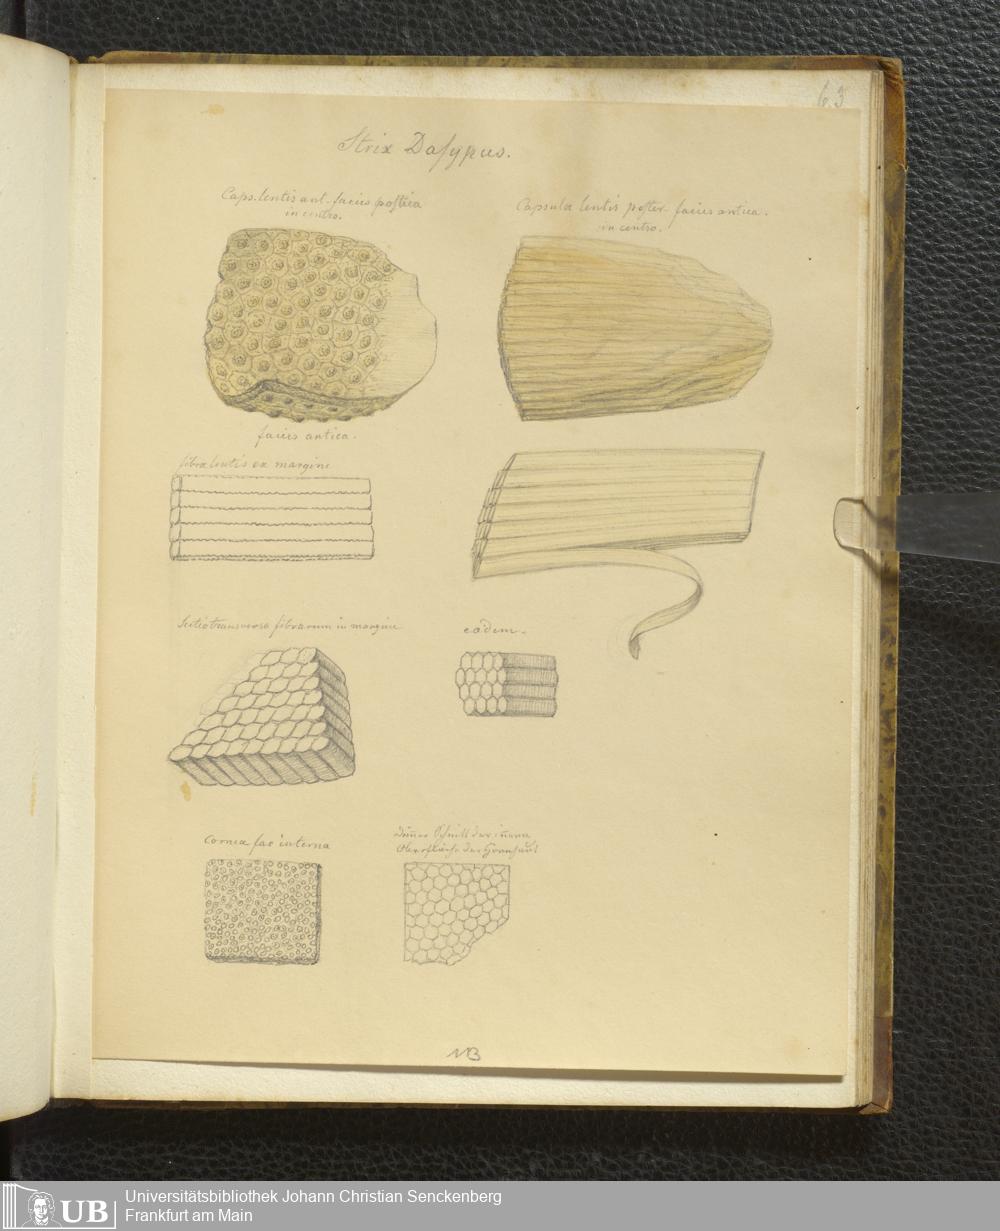 63
Strix Dasypus.
Caps. lentis ant. facies postica
in centro.
Capsula lentis poster. facies antica.
in centro.
facies antica.
fibræ lentis ex margine
Sectio transversa fibrarum in margine
eadem.
Cornea fac interna
Dünner Schnitt der innern
Oberfläche der Hornhaut
NB
Universitätsbibliothek Johann Christian Senckenberg
Frankfurt am Main
UB